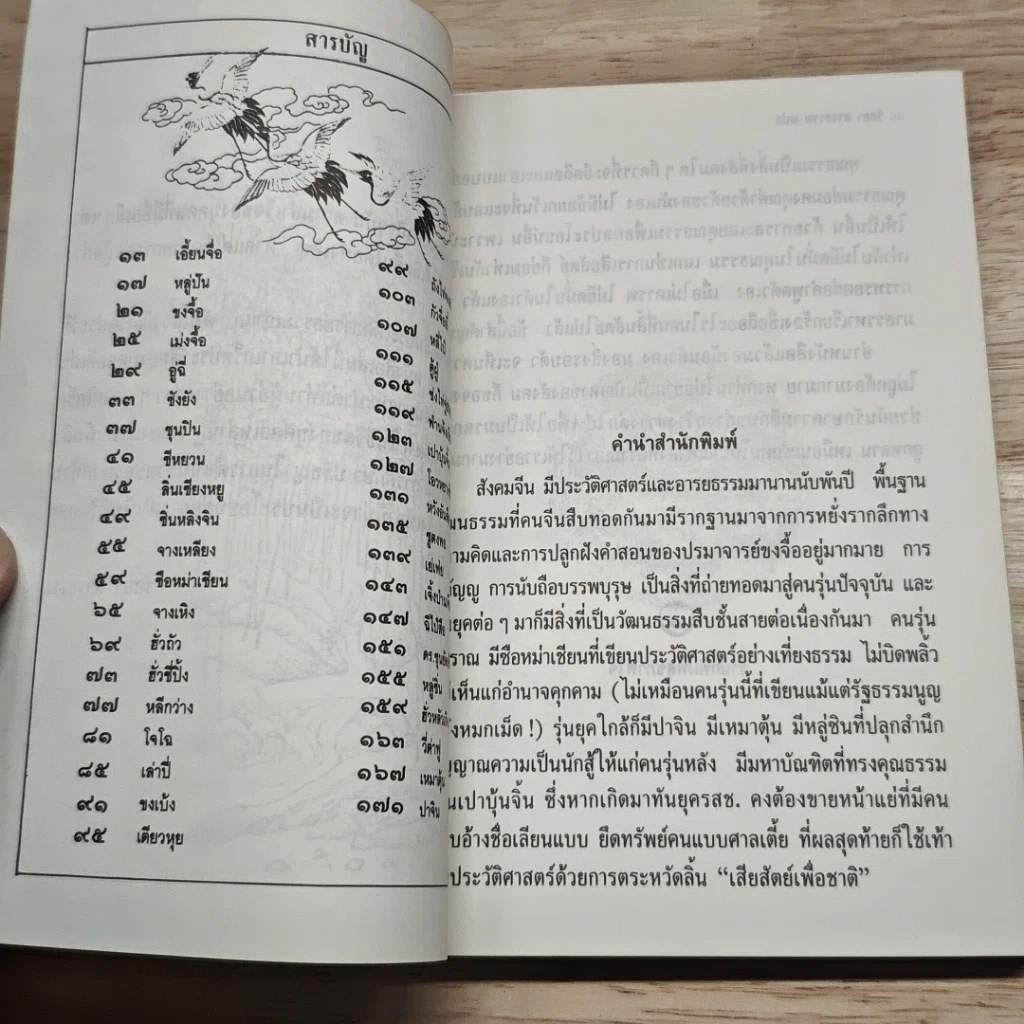 สารบัญ
๑๓ เอี้ยนจื่อ
๑๗ หลู่ปัน
๒๑ ขงจื้อ
๒๕ เม่งจื้อ
๒๙ อู๋ฉี่
๓๓ ซังยัง
๓๗ ซุนปิน
๔๑ ชีหยวน
๔๕ ลิ่นเซียงหยู
๔๙ ซิ่นหลิงจิน
๕๕ จางเหลียง
๕๙ ซือหม่าเชียน
๖๕ จางเหิง
๖๙ ฮั่วถัว
๗๓ ฮั่วชี่ปิ้ง
๗๗ หลีกว่าง
๘๑ โจโฉ
๘๕ เล่าปี่
๙๑ ขงเบ้ง
๙๕ เตียวหุย
๙๙
๑๐๓
๑๐๗
๑๑๑
๑๑๕
๑๑๙
๑๒๓
๑๒๗
๑๓๑
๑๓๕
๑๓๙
๑๔๓
๑๔๗
๑๕๑
๑๕๕ หลู่ซิ่น
๑๕๙
๑๖๓
๑๖๗ เหมาตุ้น
๑๗๑ ปาจิน
คำนำสำนักพิมพ์
สังคมจีน มีประวัติศาสตร์และอารยธรรมมานานนับพันปี พื้นฐาน
ฒนธรรมที่คนจีนสืบทอดกันมามีรากฐานมาจากการหยั่งรากลึกทาง
ามคิดและการปลูกฝังคำสอนของปรมาจารย์ขงจื้ออยู่มากมาย การ
ัญญู การนับถือบรรพบุรุษ เป็นสิ่งที่ถ่ายทอดมาสู่คนรุ่นปัจจุบัน และ
ยุคต่อ ๆ มาก็มีสิ่งที่เป็นวัฒนธรรมสืบชั้นสายต่อเนื่องกันมา คนรุ่น
ราณ มีซือหม่าเชียนที่เขียนประวัติศาสตร์อย่างเที่ยงธรรม ไม่บิดพลิ้ว
เห็นแก่อำนาจคุกคาม (ไม่เหมือนคนรุ่นนี้ที่เขียนแม้แต่รัฐธรรมนูญ
งหมกเม็ด !) รุ่นยุคใกล้ก็มีปาจิน มีเหมาตุ้น มีหลู่ซินที่ปลุกสำนึก
ญาณความเป็นนักสู้ให้แก่คนรุ่นหลัง มีมหาบัณฑิตที่ทรงคุณธรรม
นเปาบุ้นจิ้น ซึ่งหากเกิดมาทันยุครสช. คงต้องขายหน้าแย่ที่มีคน
บอ้างชื่อเลียนแบบ ยึดทรัพย์คนแบบศาลเตี้ย ที่ผลสุดท้ายก็ใช้เท้า
ประวัติศาสตร์ด้วยการตระหวัดลิ้น “เสียสัตย์เพื่อชาติ”